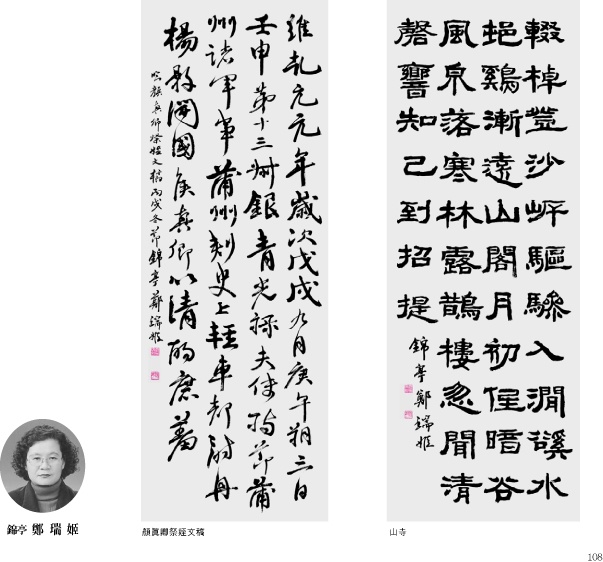 維乾元元年歲次戊戌九月庚午朔三日
壬申第十三叔銀青光祿夫使持節蒲
州諸軍事蒲州刺史上輕車都尉丹
楊縣開國侯真卿以清酌庶羞
臨顏真卿祭姪文稿丙戌冬節錦亭鄭瑞姬
輟棹登沙岍驅驂入澗磎水
挹鷄漸遠山閣月初低暗谷
風泉落寒林露鵲棲忽聞清
磬響知己到招提
錦亭鄭瑞姬
錦亭 鄭瑞姬
顔眞卿祭姪文稿
山寺
108